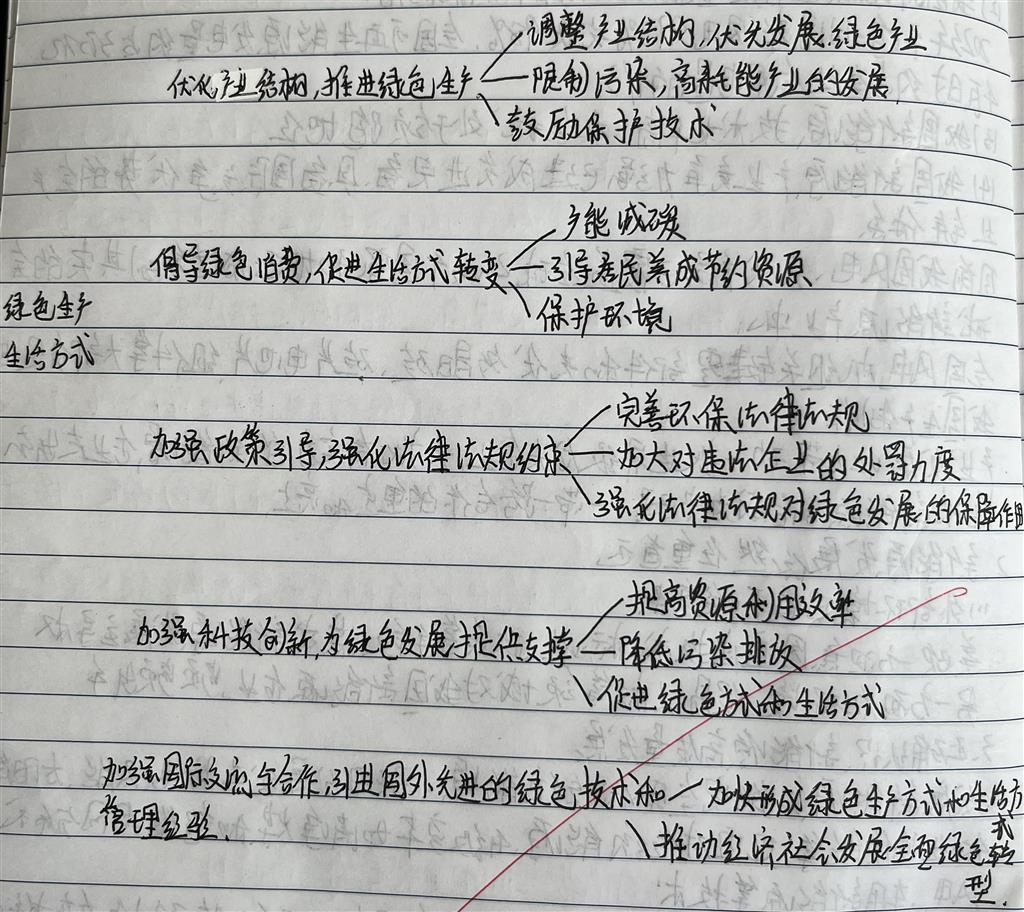 调整产业结构,优先发展绿色产业
优化产业结构,推进绿色生产
限制污染,高耗能产业的发展
鼓励保护技术
产能减碳
倡导绿色消费,促进生活方式转变
引导居民养成节约资源
保护环境
绿色生产
生活方式
完善环保法律法规
加强政策引导,强化法律法规约束
加大对违法企业的处罚力度
强化法律法规对绿色发展的保障作用
提高资源利用效率
加强科技创新,为绿色发展提供支撑
降低污染排放
促进绿色方式和生活方式
加强国际交流与合作,引进国外先进的绿色技术和
管理经验.
加快形成绿色生产方式和生活方
式
推动经济社会发展全面绿色转
型.